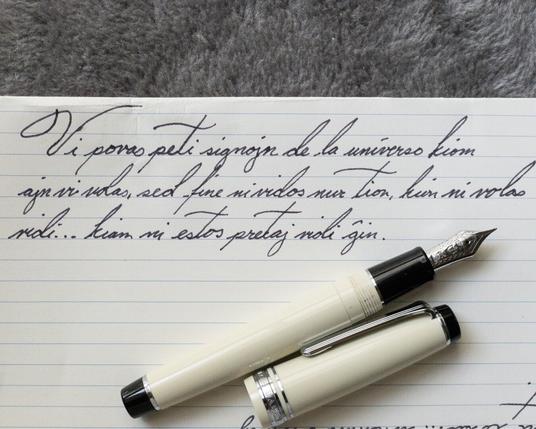 Vi povas peti signojn de la universo kiom
ajn vi volas, sed fine ni vidos nur tion, kiun ni volas
vidi... kiam ni estos pretaj vidi ĝin.